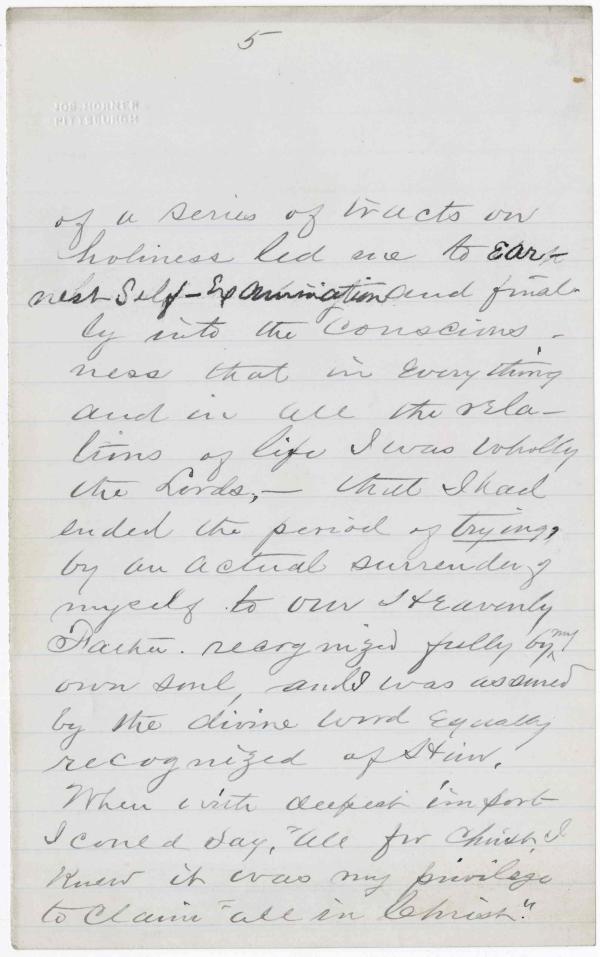 5
JOS. HORNER
PITTSBURGH
of a series of tracts on
holiness led me to ear-
nest Self-Examination and final-
ly into the conscious-
ness that in everything
and in all the rela-
tions of life I was wholly
the Lords,— that I had
ended the period of trying,
by an actual surrender of
myself to our Heavenly
Father. recognized fully by my
own soul, and I was assured
by the divine word equally
recognized of Him.
When with deepest import
I could say, "all for Christ, I
knew it was my privilege
to claim "all in Christ."